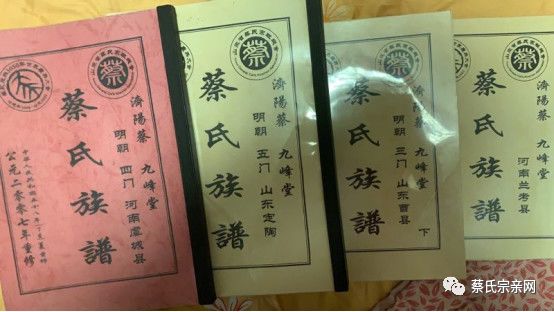 蔡
濟陽蔡 九峰堂
明朝 四门 河南虞城县
蔡氏族譜
公元二〇〇七年重修
蔡
濟陽蔡 九峰堂
明朝 五门 山东定陶
蔡氏族譜
蔡
濟陽蔡 九峰堂
明朝 三门 山东曹县
下
蔡氏族譜
蔡
濟陽蔡 九峰堂
河南兰考县
蔡氏族譜
蔡氏宗亲网